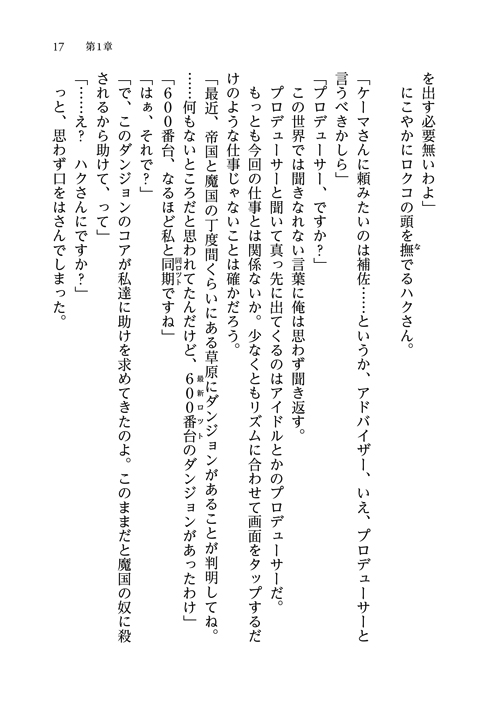 17　第1章
を出す必要無いわよ」
　にこやかにロクコの頭を撫でるハクさん。
な
「ケーマさんに頼みたいのは補佐……というか、アドバイザー、いえ、プロデューサーと
言うべきかしら」
「プロデューサー、ですか？」
　この世界では聞きなれない言葉に俺は思わず聞き返す。
　プロデューサーと聞いて真っ先に出てくるのはアイドルとかのプロデューサーだ。
　もっとも今回の仕事とは関係ないか。少なくともリズムに合わせて画面をタップするだ
けのような仕事じゃないことは確かだろう。
「最近、帝国と魔国の丁度間くらいにある草原にダンジョンがあることが判明してね。
……何もないところだと思われてたんだけど、６００番台のダンジョンがあったわけ」
最新ロット
「６００番台、なるほど私と同期ですね」
同ロット
「はぁ、それで？」
「で、このダンジョンのコアが私達に助けを求めてきたのよ。このままだと魔国の奴に殺
されるから助けて、って」
「……え？　ハクさんにですか？」
　っと、思わず口をはさんでしまった。